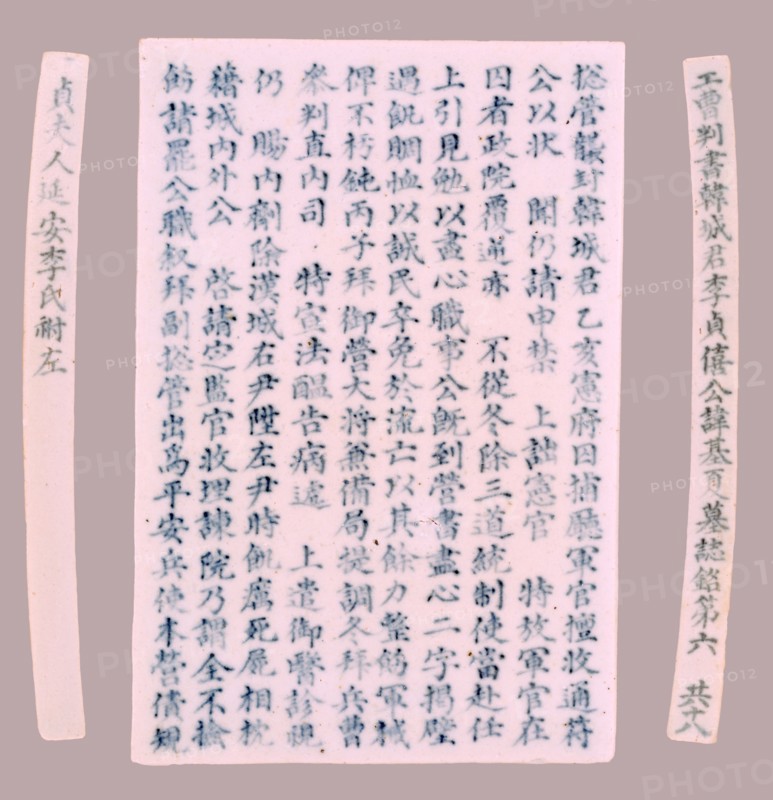 工曹判書韓城君李貞僖公諱基夏墓誌銘第六 共十八
捴管襲封韓城君乙亥憲府囚捕廳軍官擅收通符
公以狀 聞仍請申禁 上詘憲官 特放軍官在
囚者政院覆逆亦 不從冬除三道統制使當赴任
上引見勉以盡心職事公旣到營書盡心二字揭壁
遇飢賙恤以誠民卒免於流亡以其餘力整飭軍械
俾不朽鈍丙子拜 御營大將兼備局提調冬拜兵曹
叅判直內司 特宣法醞告病遞 上遣御醫診視
仍 賜內劑除漢城右尹陞左尹時飢癘死屍相枕
藉城內外公 啓請定監官收埋諫院乃謂全不撿
飭請罷公職叙拜副捴管出爲平安兵使本營債規
貞夫人延安李氏祔左
PHOTO12